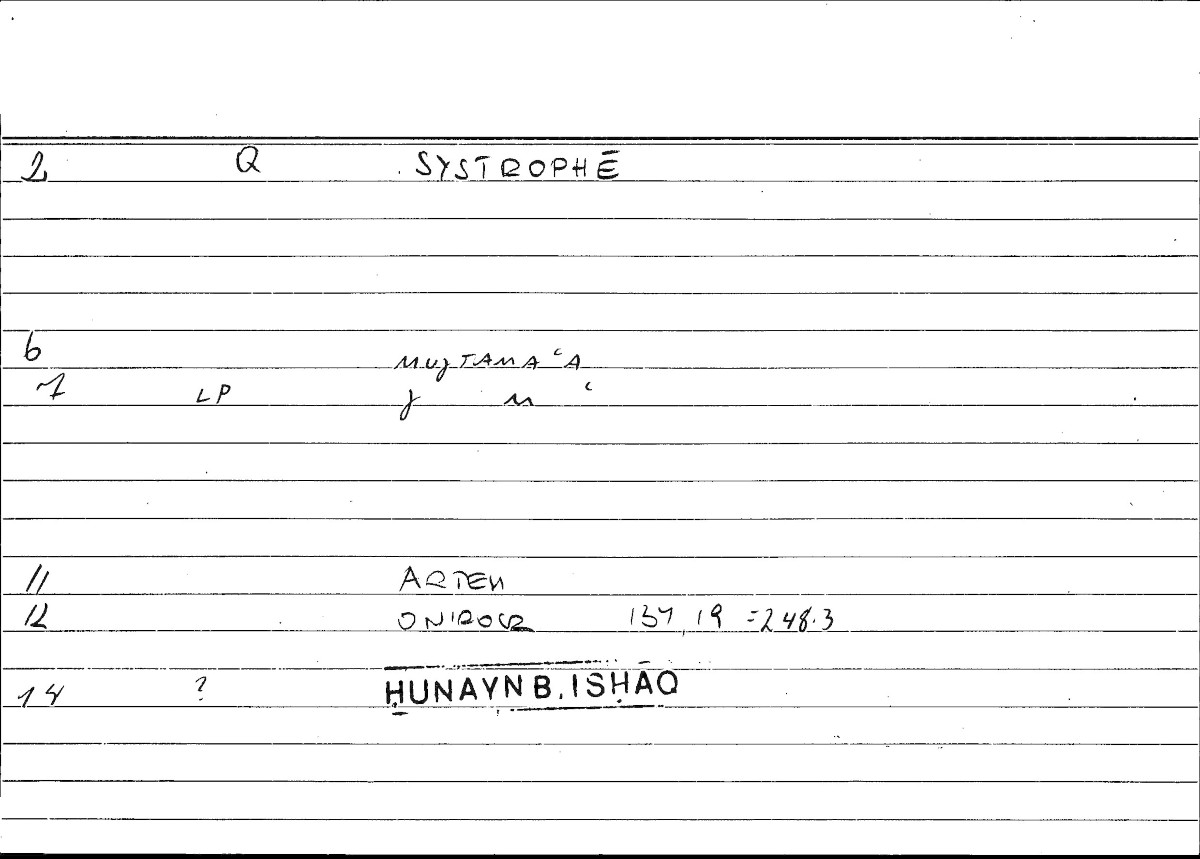 2 Q SYSTROPHĒ
6 MUJTAMAʿA
7 LP J M ʿ
11 ARTEM
12 ONIROCR 137,19 =248.3
14 ? ḤUNAYN B. ISḤĀQ